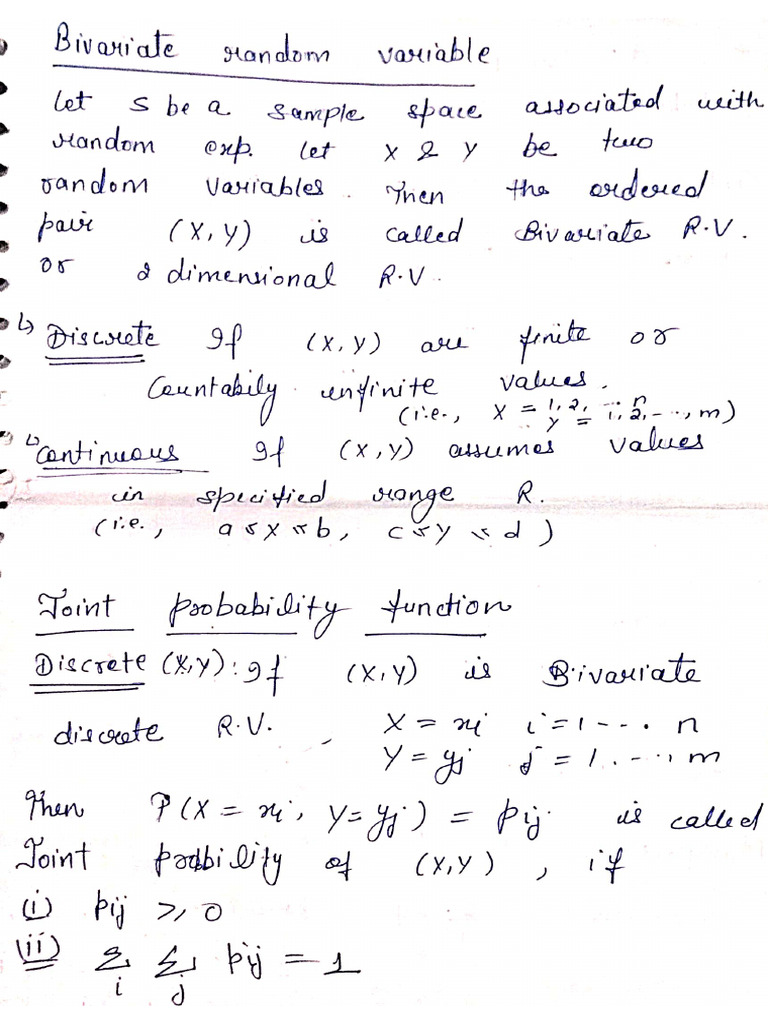 Bivariate random variable
Let S be a sample space associated with
random exp. Let X & Y be two
random variables. Then the ordered
pair (X, Y) is called Bivariate R.V.
or 2 dimensional R.V.
↳ Discrete If (X, Y) are finite or
Countabily infinite values.
(i.e., X = 1, 2, ... n
Y = 1, 2, - .., m)
↳ Continuous If (X, Y) assumes values
in specified range R.
(i.e., a ≤ X ≤ b, c ≤ Y ≤ d)
Joint probability function
Discrete (X,Y): If (X,Y) is Bivariate
discrete R.V. X = xi i = 1 - - . n
Y = yj j = 1 . - .. m
Then P(X = xi, Y = yj) = pij is called
Joint probility of (X,Y), if
(i) pij ≥ 0
(ii) Σi Σj pij = 1